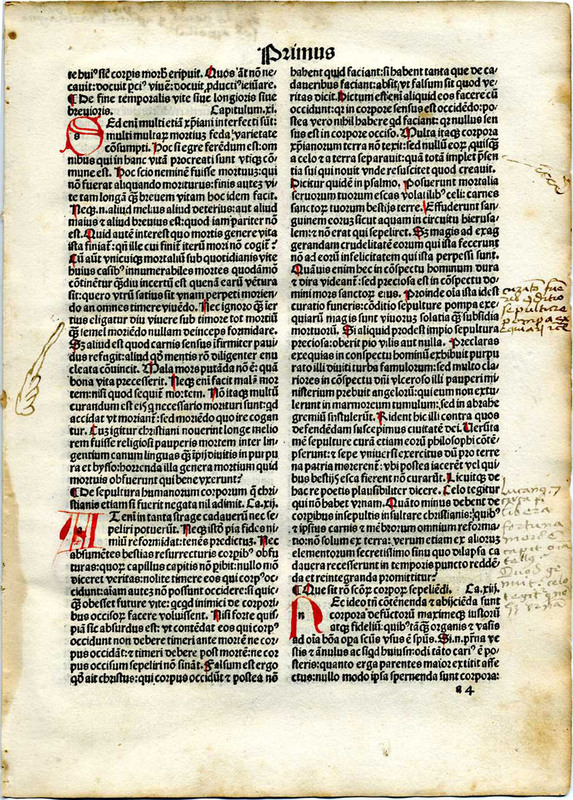 Primus
te huiꝰ sēć corꝑis morbū eripuit. Quos aūt nō ne⸗
cauit: docuit ꝑci
De fine temporalis vite siue longioris siue
breuioris. Capitulum.xi.
Sed eni multi etiā xp̄iani interfecti sūt:
multi multaꝝ mortiuȝ feda varietate
cōsumpti. Hoc si egre ferēdum est: om
nibus qui in hanc vitā procreati sunt vtiqȝ cō⸗
mune est. Hoc scio neminē fuisse mortuuȝ: qui
nō fuerat aliquando moriturus: finis autez vi⸗
te tam longā ꝙ̄ breuem vitam hoc idem facit.
Neqȝ.n. aliud melius aliud deterius: aut aliud
maius ⁊ aliud breuius est: quod iam pariter nō
est. Quid autē interest quo mortis genere vita
ista finiat̄: qn̄ ille cui finit̄ iteꝝ mori nō cogit̄?
Cū aūt vnicuiqȝ mortaliū sub quotidianis vite
huius casibꝰ innumerabiles mortes quodāmō
cōtinētur ꝙ̄diu incertū est quenā earū vētura
sit: quero vtꝝ satius sit vnam perpeti morien⸗
do an omnes timere viuēdo. Nec ignoro ꝙ̄
tius eligatur diu viuere sub timore tot mortiū
ꝙ̄ semel moriēdo nullam deinceps formidare.
Sȝ aliud est quod carnis sensus īfirmiter paui⸗
dus refugit: aliud qd̄ mentis rō diligenter enu
cleata cōuincit. Mala mors putāda nō ē: quā
bona vita precesserit. Neqȝ eni facit malā mor
tem: nisi quod sequit̄ mortem. Nō itaqȝ multū
curandum est eis q̄ necessario morituri sunt: qd
accidat vt moriant̄: sed moriēdo quo ire cogan
tur. Cuȝ igitur christiani nouerint longe melio
rem fuisse religiosi pauperis mortem inter lin⸗
gentium canum linguas ꝙ̄ īpij diuitis in purpu
ra et bysso: horrenda illa genera mortium quid
mortuis obfuerunt qui bene vixerunt?
De sepultura humanorum corporum q̄ chri
stianis etiam si fuerit negata nil adimit. Ca.xij.
At eni in tanta strage cadaueꝝ nec se⸗
peliri potuerūt. Neqȝ istō pia fides ni
miū reformidat: tenēs predictuȝ. Nec
absumētes bestias resurrecturis corꝑibꝰ obfu
turas: quoꝝ capillus capitis nō ꝑibit: nullo mō
diceret veritas: nolite timere eos qui corpꝰ oc⸗
cidunt: aīam autez nō possunt occidere: si quic⸗
ꝙ̄ obesset future vite: qcqd inimici de corpori⸗
bus occisoꝝ facere voluissent. Nisi forte quis⸗
piā sic absurdus est: vt contēdat eos qui corpꝰ
occidunt non debere timeri ante mortē ne cor⸗
pus occidāt: ⁊ timeri debere post mortē: ne cor
pus occisum sepeliri nō sināt. Falsum est ergo
qd̄ ait christus: qui corpus occidūt ⁊ postea nō
habent quid faciant: si habent tanta que de ca⸗
daueribus faciant: absit vt falsum sit quod ve⸗
ritas dicit. Dictum est eni aliquid eos facere cū
occidunt: qr in corpore sensus est occidēdo: po⸗
stea vero nihil habere qd faciant: qr nullus sen
sus est in corpore occiso. Multa itaqȝ corpora
xp̄ianorum terra nō texit: sed nullū eoꝝ quisqȝ
a celo ⁊ a terra separauit: quā totā implet p̄sen
tia sui qui nouit vnde resuscitet quod creauit.
Dicitur quidē in psalmo. Posuerunt mortalia
seruorum tuorum escas volatilibꝰ celi: carnes
sanctoꝝ tuorum bestijs terre. Effuderunt san⸗
guinem eorū sicut aquam in circuitu hierusa⸗
lem: ⁊ nō erat qui sepeliret. Sȝ magis ad exag
gerandam crudelitatē eorum qui ista fecerunt
nō ad eorū infelicitatem qui ista perpessi sunt.
Quāuis enim hec in cōspectu hominum dura
⁊ dira videant̄: sed preciosa est in cōspectu do⸗
mini mors sanctoꝝ eius. Proinde oīa ista id est
curatio funeris: cōditio sepulture pompa exe⸗
quiarū magis sunt viuoruȝ solatia ꝙ̄ subsidia
mortuorū. Si aliquid prodest impio sepultura
preciosa: oberit pio vilis aut nulla. Preclaras
exequias in conspectu hominū exhibuit purpu
rato illi diuiti turba famulorum: sed multo cla⸗
riores in cōspectu dn̄i vlceroso illi pauperi mi⸗
nisterium prebuit angeloꝝ: qui eum non extu⸗
lerunt in marmoreum tumulum: sed in abrahe
gremiū sustulerūt. Rident hec illi contra quos
defendēdam suscepimus ciuitatē dei. Veruntā
mē sepulture curā etiam eorū philosophi cōtē⸗
pserunt: ⁊ sepe vniuersi exercitus dū pro terre
na patria morerent̄: vbi postea iacerēt vel qui
bus bestijs esca fierent nō curarūt. Licuitqȝ de
hac re poetis plausibiliter dicere. Celo tegitur
qui nō habet vrnam. Quāto minus debent de
corporibus insepultis insultare christianis: quibꝰ
⁊ ipsius carnis ⁊ mēbrorum omnium reforma⸗
tio nō solum ex terra: verum etiam ex aliorum
elementorum secretissimo sinu quo dilapsa ca
dauera recesserunt in temporis puncto reddē⸗
da et reintegranda promittitur?
Que sit rō scōꝝ corpoꝝ sepeliēdi. Ca.xiij.
Nec ideo tn̄ cōtēnenda ⁊ abijciēda sunt
corpora defūctorū maximeqȝ iustorū
atqȝ fideliū: quibꝰ tāqȝ organis ⁊ vasis
ad oīa bōa opa scūs vsus ē sp̄us. Si.n. p̄rna ve⸗
stis ⁊ ānulus ac siqd huiusmōdi tāto cariꝰ ē po⸗
steris: quanto erga parentes maior extitit affe
ctus: nullo modo ipsa spernenda sunt corpora:
a 4